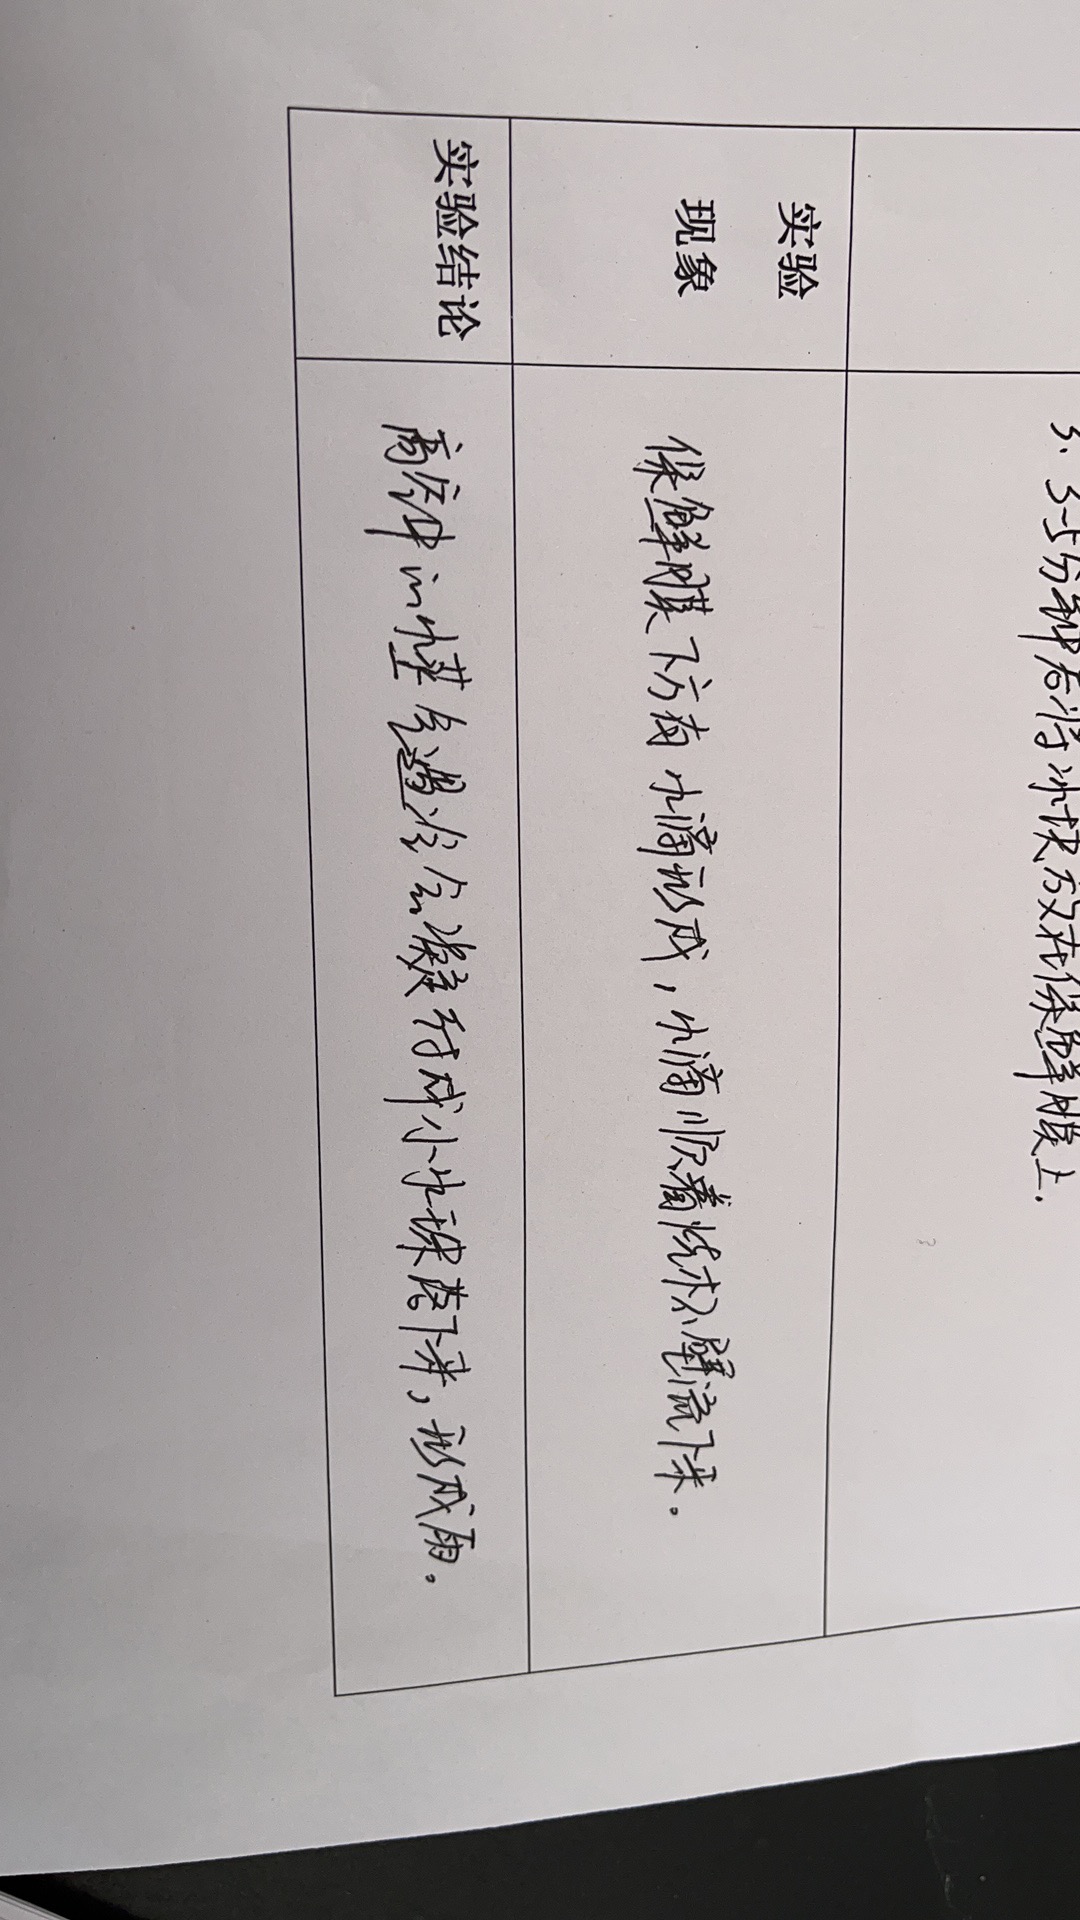 3、3-5分钟后将冰块放在保鲜膜上.
实验
现象
保鲜膜下方有水滴形成，水滴顺着烧杯壁流下来。
实验结论
高空中的水蒸气遇冷会凝结成小水珠落下来，形成雨。